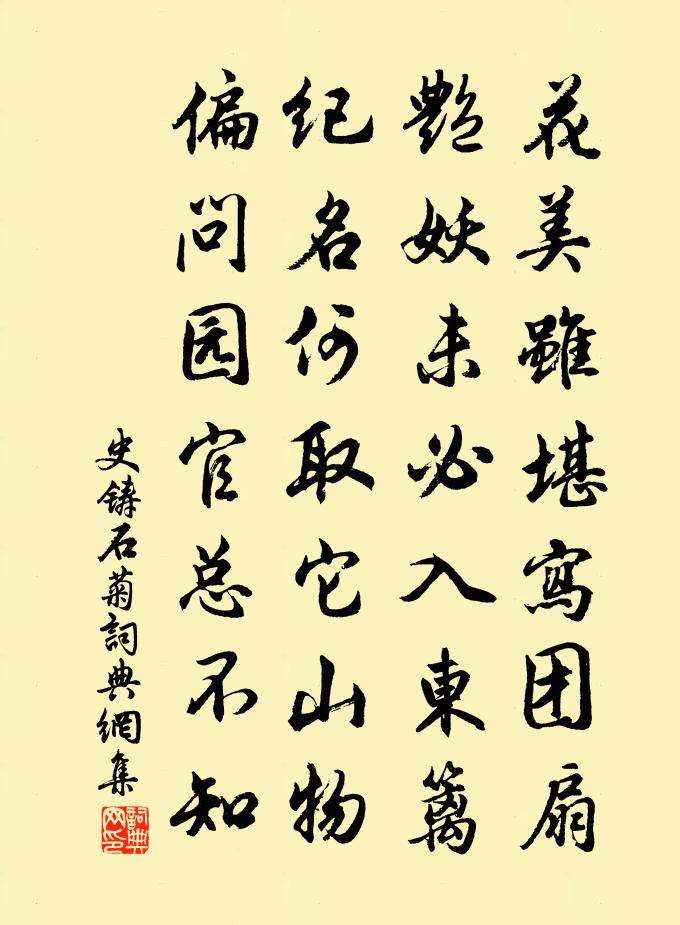 花美雖堪寫团扇
艷妖未必入東籬
纪名何取它山物
偏问园官总不知
史鑄石菊詞典網集
詞典网印